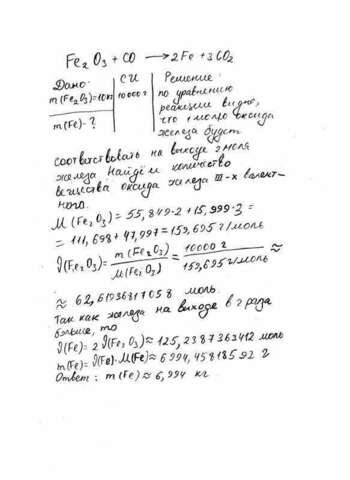 Fe₂O₃ + CO → 2Fe + 3CO₂
Дано: СИ Решение:
m(Fe₂O₃)=10кг 10000г по уравнению
реакции видно,
m(Fe)-? что 1 молю оксида
железа будет
соответствовать на выходе 2 моля
железа Найдём количество
вещества оксида железа III-х валент-
ного.
M(Fe₂O₃) = 55,849·2 + 15,999·3 =
= 111,698 + 47,997 = 159,695 г/моль
ν(Fe₂O₃) = m(Fe₂O₃)/M(Fe₂O₃) = 10000 г/159,695 г/моль ≈
≈ 62,61936817058 моль.
Так как железа на выходе в 2 раза
больше, то
ν(Fe) = 2 ν(Fe₂O₃) ≈ 125,2387363412 моль
m(Fe) = ν(Fe)·M(Fe) ≈ 6994,45818592 г
Ответ: m(Fe) ≈ 6,994 кг.